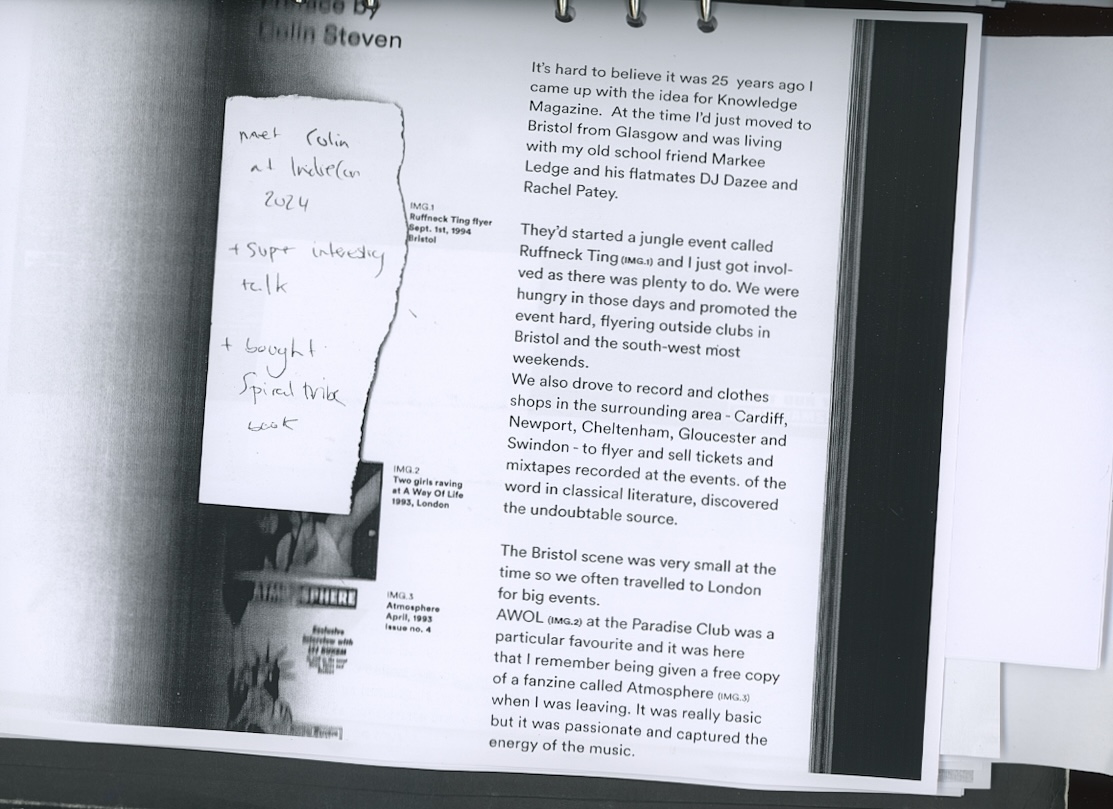 Preface by
Colin Steven
met Colin
at IndieCon
2024
+ super interesting
talk
+ bought
Spiral tribe
book
IMG.1
Ruffneck Ting flyer
Sept. 1st, 1994
Bristol
IMG.2
Two girls raving
at A Way Of Life
1993, London
ATMOSPHERE
Exclusive
Interview with
IMG.3
Atmosphere
April, 1993
Issue no. 4
It's hard to believe it was 25 years ago I
came up with the idea for Knowledge
Magazine. At the time I'd just moved to
Bristol from Glasgow and was living
with my old school friend Markee
Ledge and his flatmates DJ Dazee and
Rachel Patey.
They'd started a jungle event called
Ruffneck Ting (IMG.1) and I just got invol-
ved as there was plenty to do. We were
hungry in those days and promoted the
event hard, flyering outside clubs in
Bristol and the south-west most
weekends.
We also drove to record and clothes
shops in the surrounding area - Cardiff,
Newport, Cheltenham, Gloucester and
Swindon - to flyer and sell tickets and
mixtapes recorded at the events. of the
word in classical literature, discovered
the undoubtable source.
The Bristol scene was very small at the
time so we often travelled to London
for big events.
AWOL (IMG.2) at the Paradise Club was a
particular favourite and it was here
that I remember being given a free copy
of a fanzine called Atmosphere (IMG.3)
when I was leaving. It was really basic
but it was passionate and captured the
energy of the music.